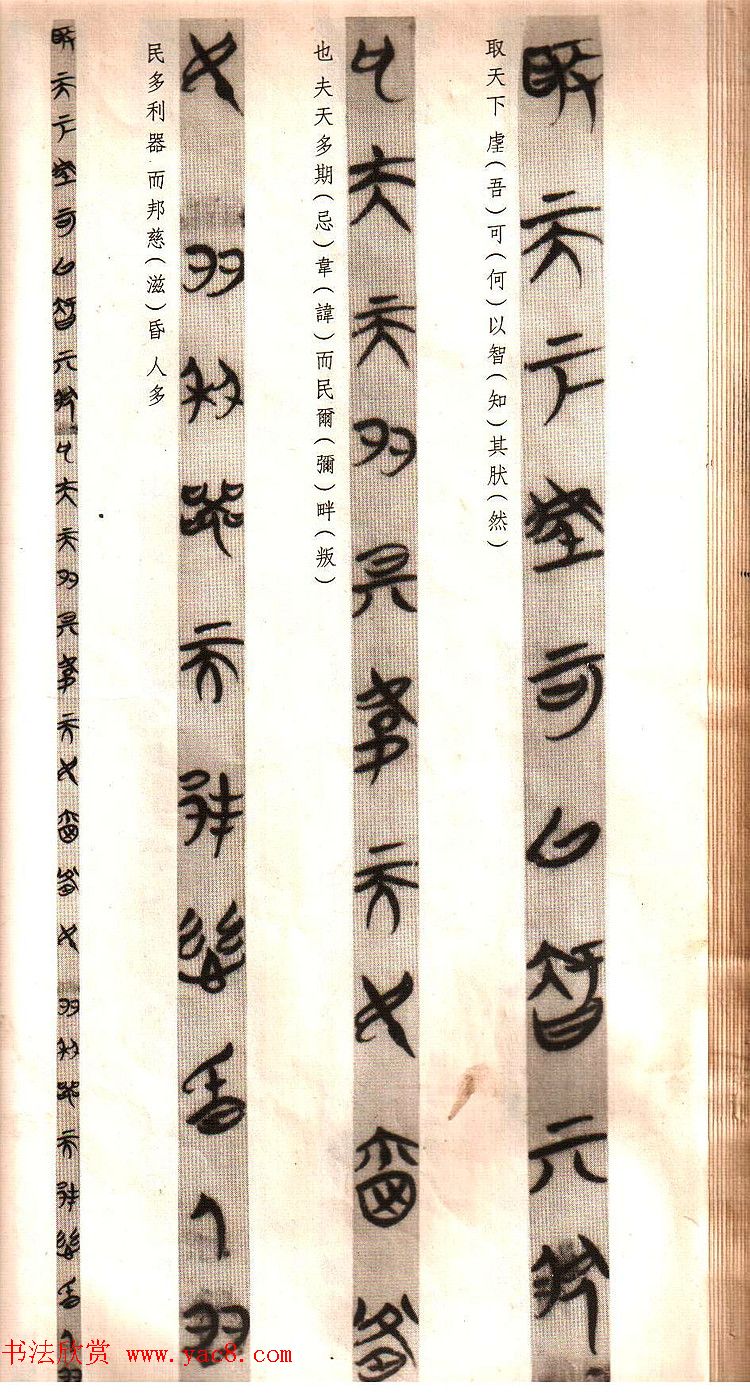 取天下虗(吾)可(何)以智(知)其肰(然)
也夫天多期(忌)韋(諱)而民爾(彌)畔(叛)
民多利器而邦慈(滋)昏人多
书法欣赏 www.yac8.com